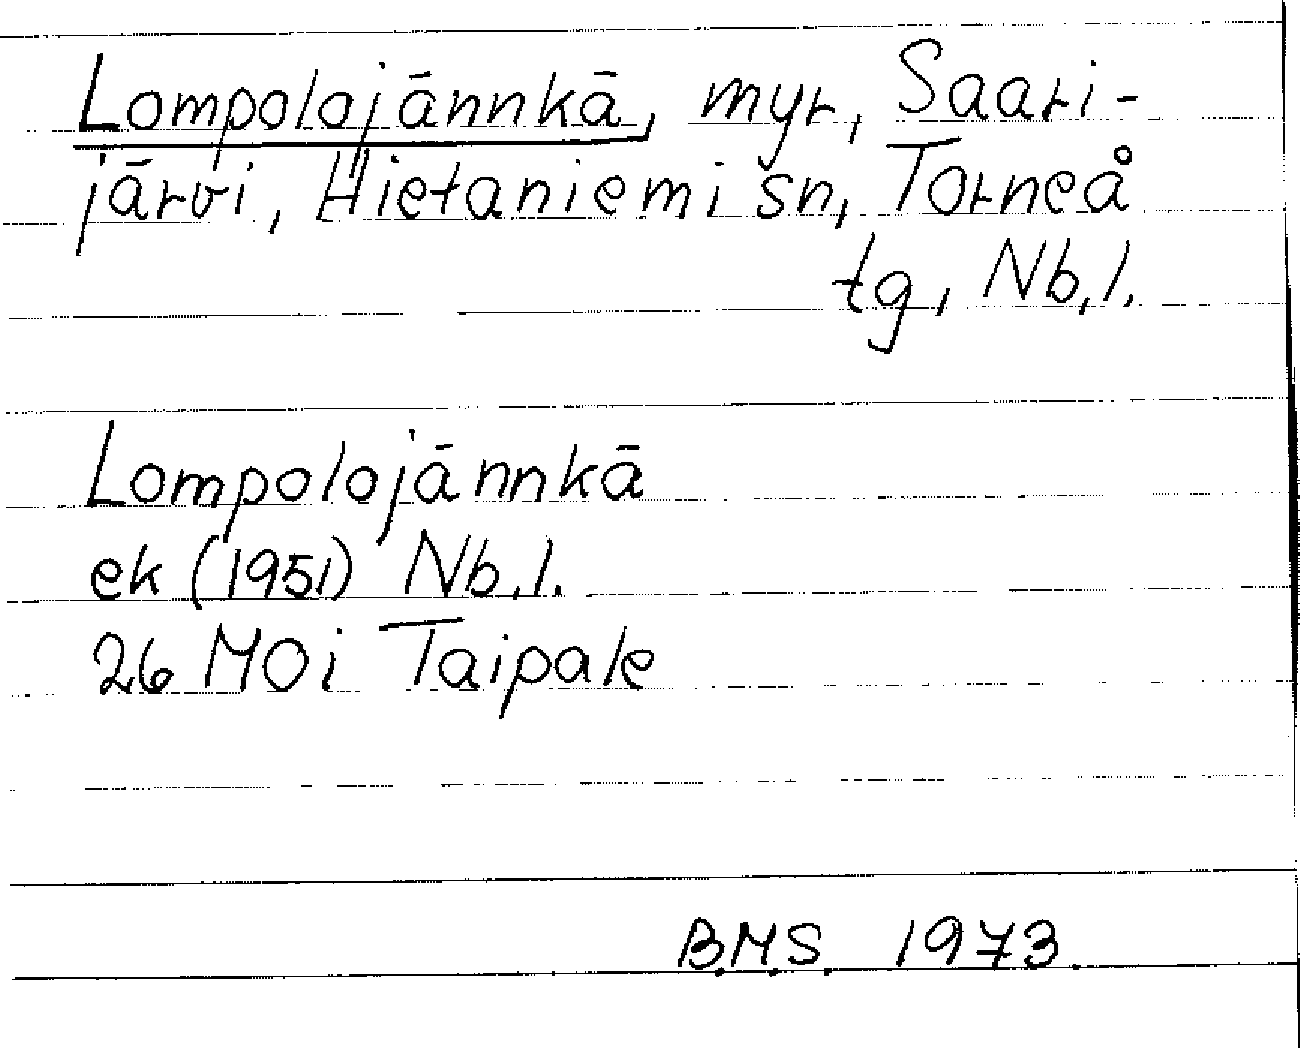 Lompolojännkä, myr, Saari-
järvi, Hietaniemi sn, Torneå
tg, Nb.l.
Lompolojännkä
ek (1951) Nb.l.
26 M0i Taipale
B.M.S. 1973.